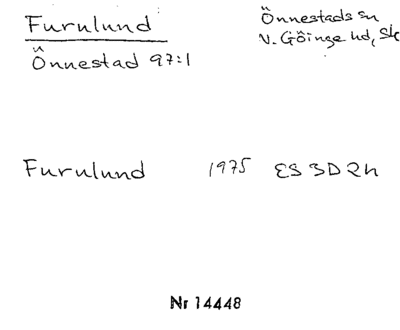 Furulund
Önnestad 97:1
Önnestads sn
V. Göinge hd, Sk
Furulund 1975 ES 3D 2h
Nr 14448